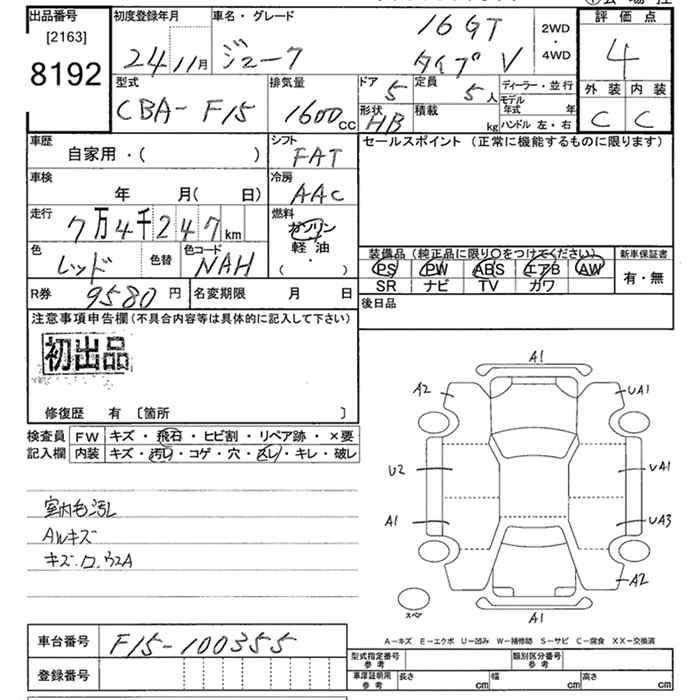 出品番号
[2163]
8192
初度登録年月
24年11月
車名・グレード
ジューク
16GT
タイプV
2WD
・
4WD
評価点
4
外装 内装
C C
型式
CBA-F15
排気量
1600cc
ドア
5
定員
5人
形状
HB
積載
kg
ディーラー・並行
モデル年式 年
ハンドル 左・右
車歴
自家用・( )
シフト
FAT
セールスポイント (正常に機能するものに限ります)
車検
年 月( 日)
冷房
AAC
走行
7万4千247km
燃料
ガソリン
軽油
( ・ )
色
レッド
色替
色コード
NAH
装備品 (純正品に限り○をつけてください)
PS PW ABS エアB AW
SR ナビ TV カワ
新車保証書
有・無
R券 9580円
名変期限 月 日
後日品
注意事項申告欄(不具合内容等は具体的に記入して下さい)
初出品
修復歴 有 [箇所 ]
検査員記入欄
FW キズ・飛石・ヒビ割・リペア跡・×要
内装 キズ・汚レ・コゲ・穴・スレ・キレ・破レ
室内毛汚レ
AWキズ
A1
A2
UA1
U2
UA1
A1
UA3
A2
スペア
A1
A-キズ E-エクボ U-凹み W-補修跡 S-サビ C-腐食 XX-交換済
車台番号 F15-100355
登録番号
型式指定番号
参考
類別区分番号
参考
車庫証明用
参考
長さ cm 幅 cm 高さ cm